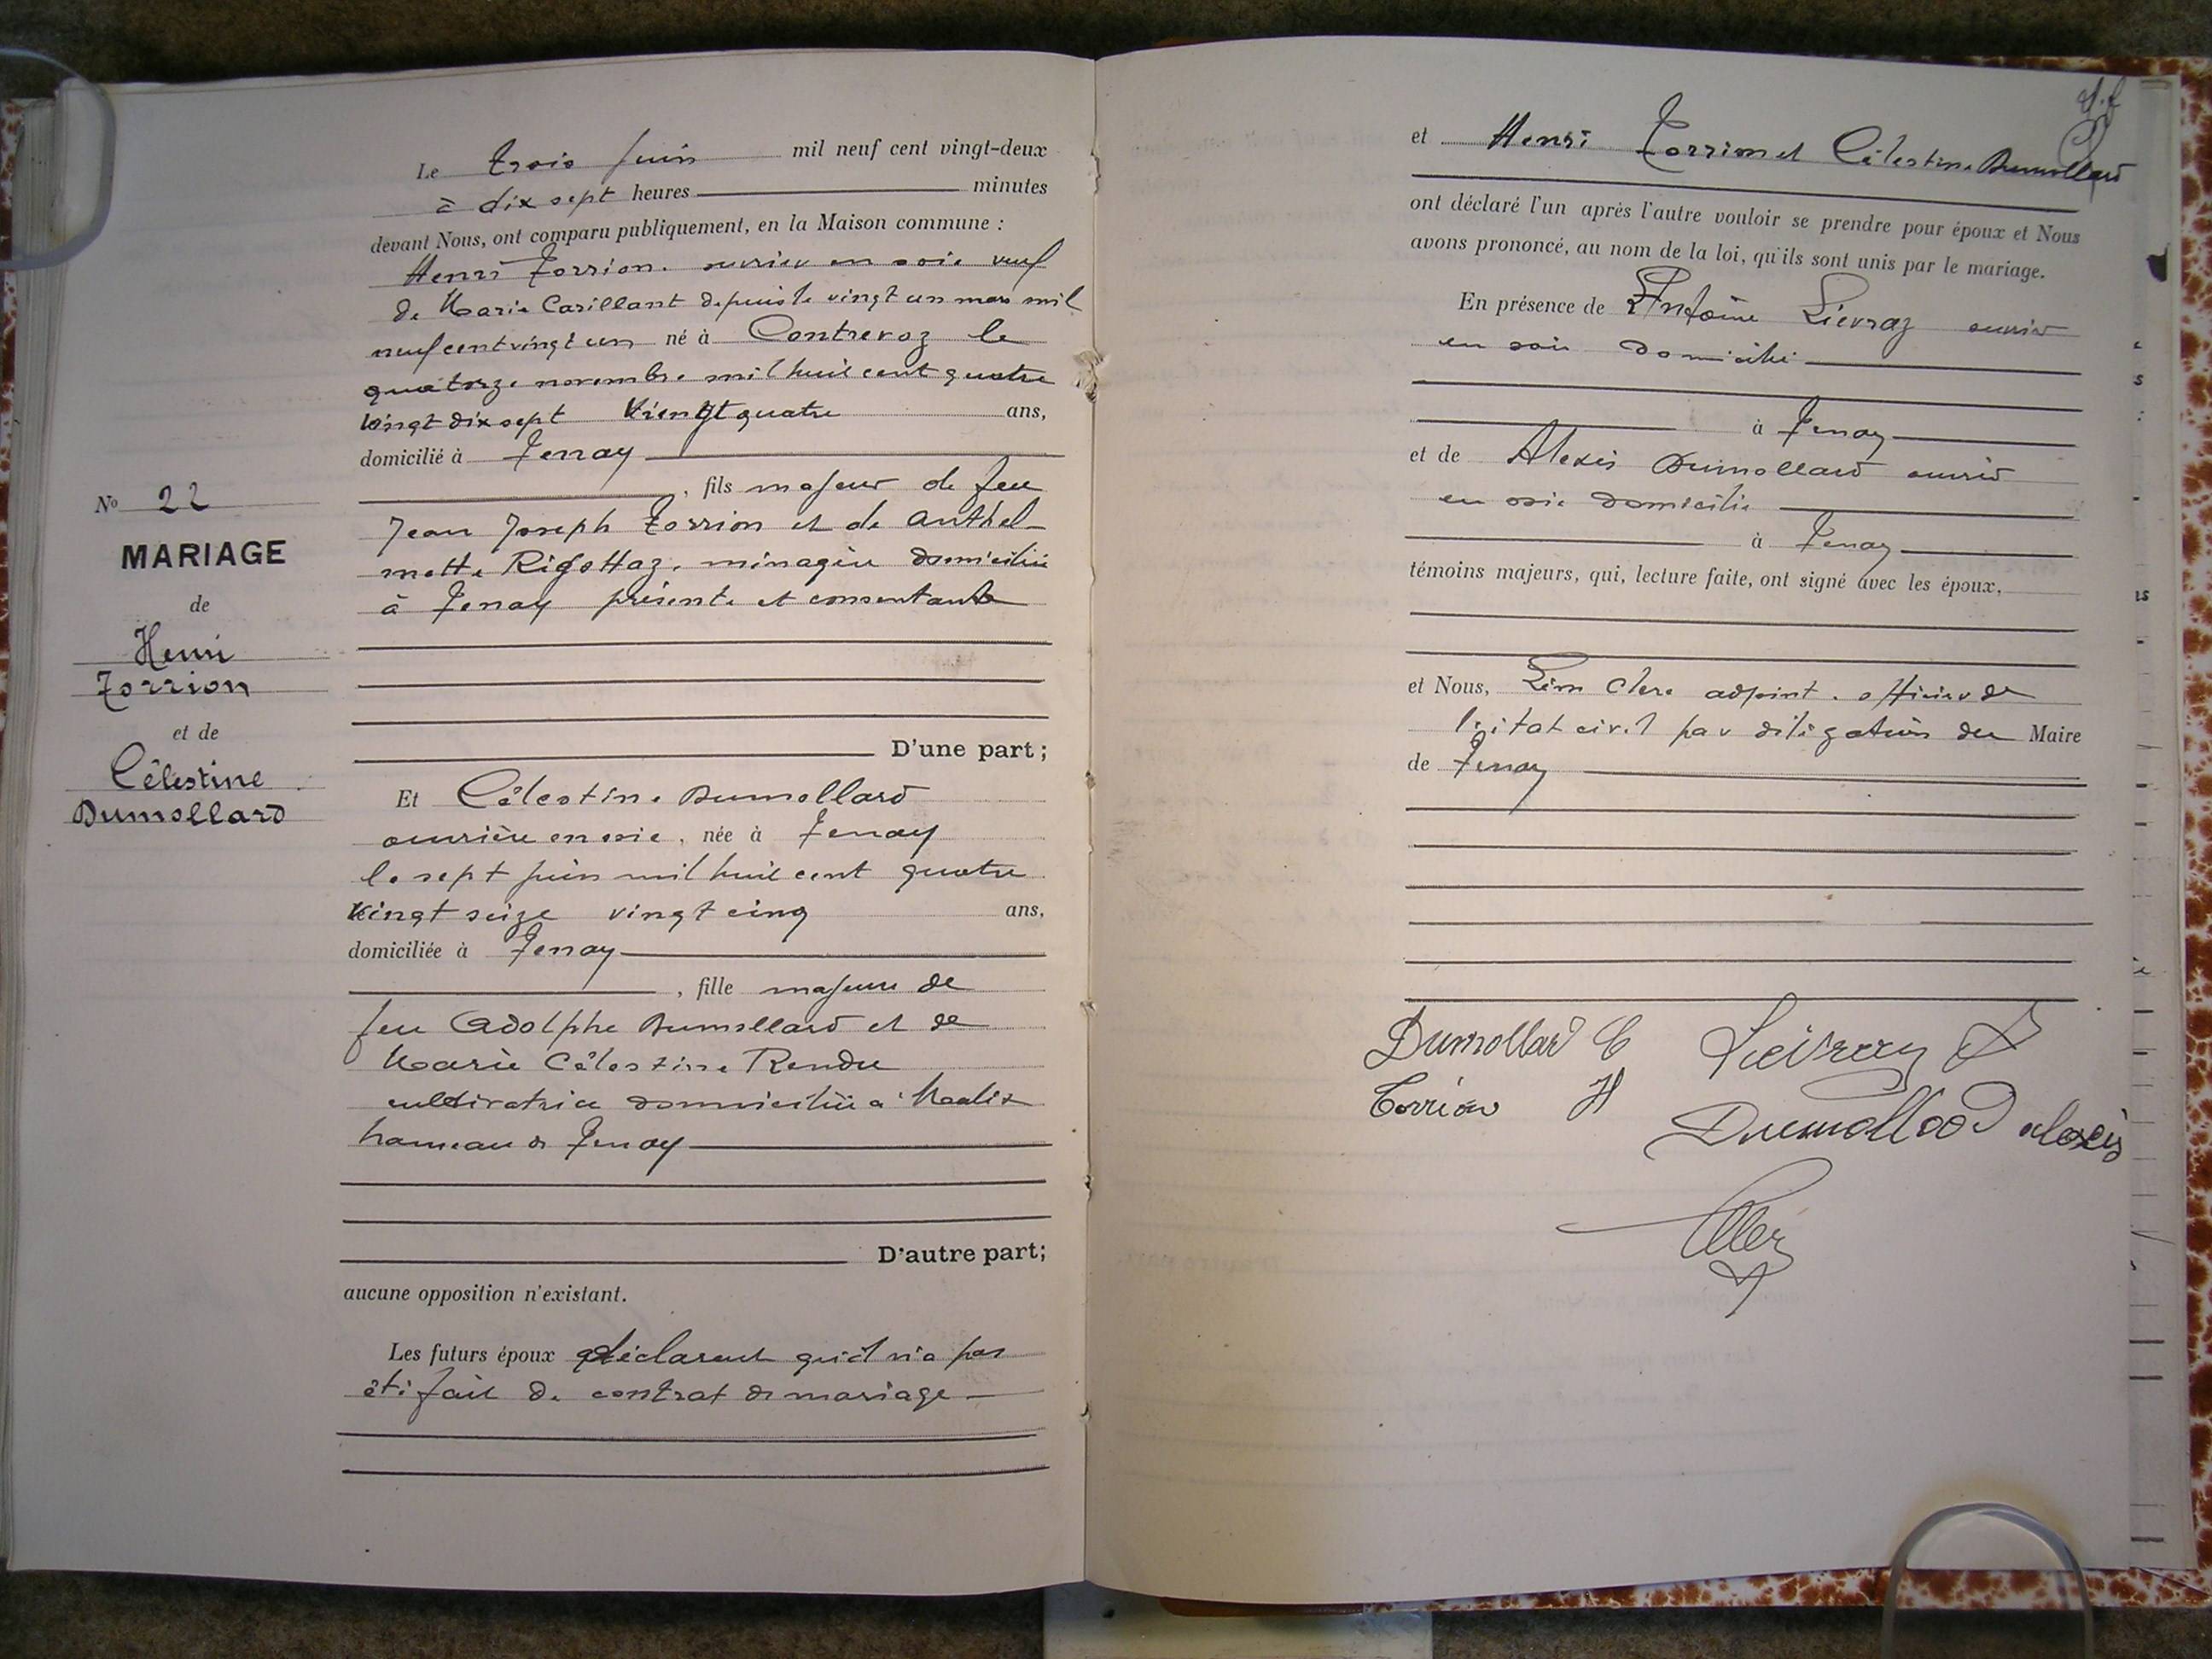 Le trois juin mil neuf cent vingt-deux
à dix sept heures minutes
devant Nous, ont comparu publiquement, en la Maison commune :
Henri Torrion. ouvrier en soie veuf
de Marie Carillant depuis le vingt un mars mil
neuf cent vingt un né à Contrevoz le
quatorze novembre mil huit cent quatre
vingt dix sept vingt quatre ans,
domicilié à Tenay
, fils majeur de feu
Jean Joseph Torrion et de Anthel-
mette Rigottaz, ménagère domiciliée
à Tenay présente et consentante
D'une part ;
No 22
MARIAGE
de
Henri
Torrion
et de
Célestine
Dumollard
Et Célestine Dumollard
ouvrière en soie, née à Tenay
le sept juin mil huit cent quatre
vingt seize vingt cinq ans,
domiciliée à Tenay
, fille majeure de
feu Adolphe Dumollard et de
Marie Célestine Rendu
cultivatrice domiciliée à Malix
hameau de Tenay
D'autre part;
aucune opposition n'existant.
Les futurs époux déclarent qu'il n'a pas
été fait de contrat de mariage
et Henri Torrion et Célestine Dumollard
ont déclaré l'un après l'autre vouloir se prendre pour époux et Nous
avons prononcé, au nom de la loi, qu'ils sont unis par le mariage.
En présence de Antoine Liévraz ouvrier
en soie domicilié
à Tenay
et de Alexis Dumollard ouvrier
en soie domicilié
à Tenay
témoins majeurs, qui, lecture faite, ont signé avec les époux,
et Nous, Clerc adjoint. officier de
l'état civil par délégation du Maire
de Tenay
Dumollard C Lievraz A
Torrion H
Dumollard alexis